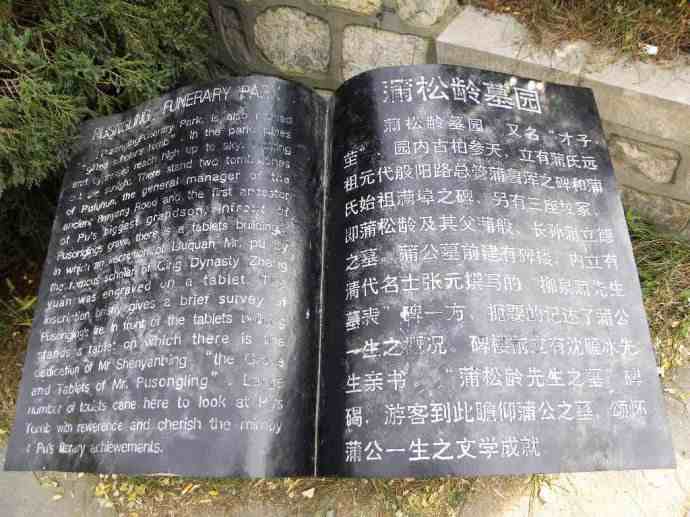 PUSONGLING FUNERARY PARK
Pusongling Funerary Park, is also named
scholar's tomb". In the park pines
and cypresses reach high up to sky,
sunlight. There stand two tombstones
of Pulunun, the general manager of the
ancient Banyang Road and the first ancestor
of Pu's biggest grandson, Infront of
Pusongling's grave, there is a tablets building,
in which an inscription of Liuquan Mr. pu by
the famous scholar of Qing Dynasty Zhang
Yuan was engraved on a tablet. The
inscription briefly gives a brief survey of
Pusongling's life. In front of the tablets building
stands a tablet on which there is the
dedication of Mr Shenyanbing, "the Grave
and Tablets of Mr. Pusongling". Large
number of tourists cane here to look at Pu's
Tomb with rewerence and cherish the
Pu's literary achiewements.
蒲松龄墓园
蒲松龄墓园,又名"才子
茔",园内古柏参天,立有蒲氏远
祖元代般阳路总管蒲鲁浑之碑和蒲
氏始祖蒲璋之碑,另有三座坟冢,
即蒲松龄及其父蒲槃、长孙蒲立德
之墓。蒲公墓前建有碑楼,内立有
清代名士张元撰写的"柳泉蒲先生
墓表"碑一方,扼要的记达了蒲公
一生之概况、碑楼前立有沈雁冰先
生亲书、"蒲松龄先生之墓"碑
碣,游客到此瞻仰蒲公之墓,颂怀
蒲公一生之文学成就